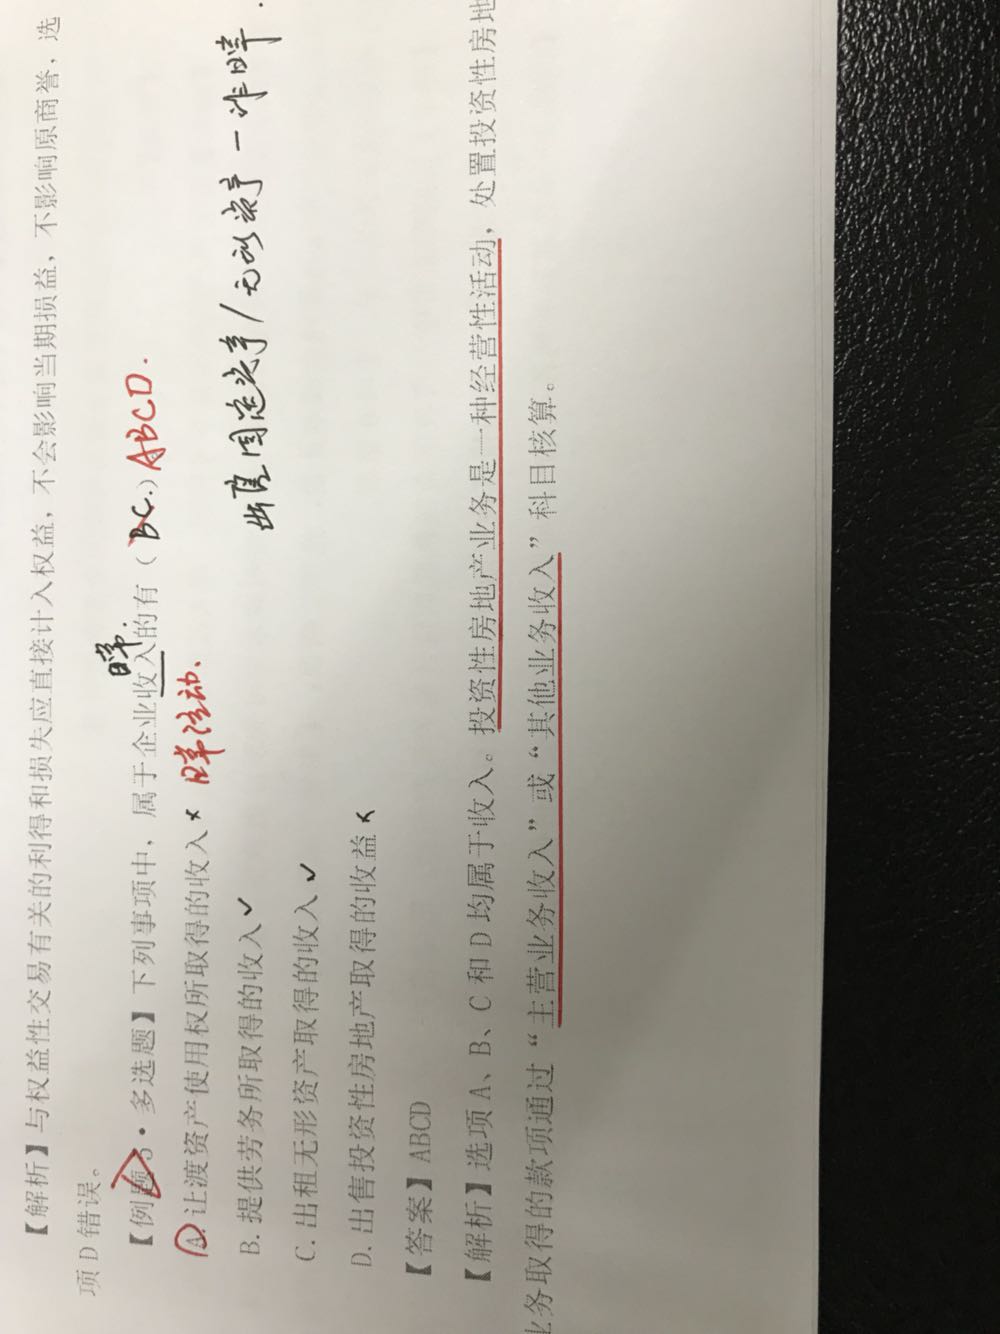 【解析】与权益性交易有关的利得和损失应直接计入权益，不会影响当期损益，不影响原商誉，选
项 D 错误。
日常.
【例题5·多选题】下列事项中，属于企业收入的有（BC.）ABCD.
A.让渡资产使用权所取得的收入× 日常活动、
B.提供劳务所取得的收入✓
出售固定资产/无形资产一非日常.
C.出租无形资产取得的收入✓
D.出售投资性房地产取得的收益×
【答案】ABCD
【解析】选项 A、B、C 和 D 均属于收入。投资性房地产业务是一种经营性活动，处置投资性房地
业务取得的款项通过“主营业务收入”或“其他业务收入”科目核算。